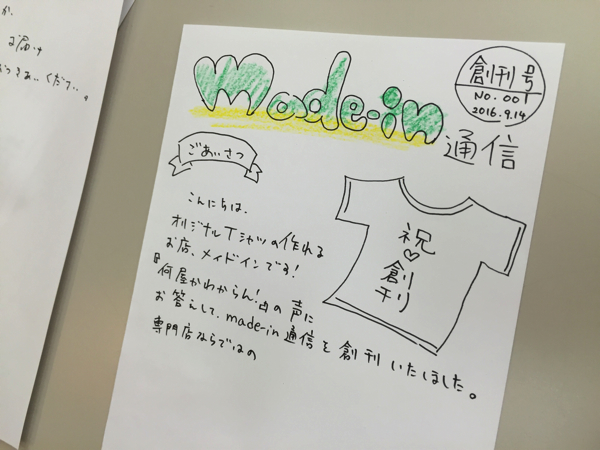 が、
お届け
おつきあいください。
made-in
通信
創刊号
NO.001
2016.9.14
ごあいさつ
こんにちは、
オリジナルTシャツの作れる
お店、メイドインです!
『何屋かわからん!』の声に
お答えして、made-in通信を創刊いたしました。
専門店ならではの
祝♡創刊